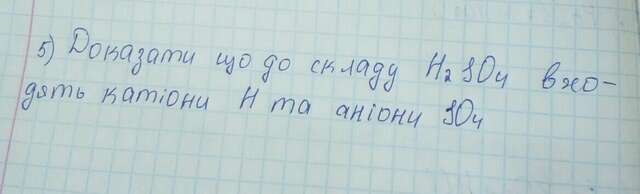 5) Доказати що до складу H₂SO₄ вхо-
дять катіони H та аніони SO₄